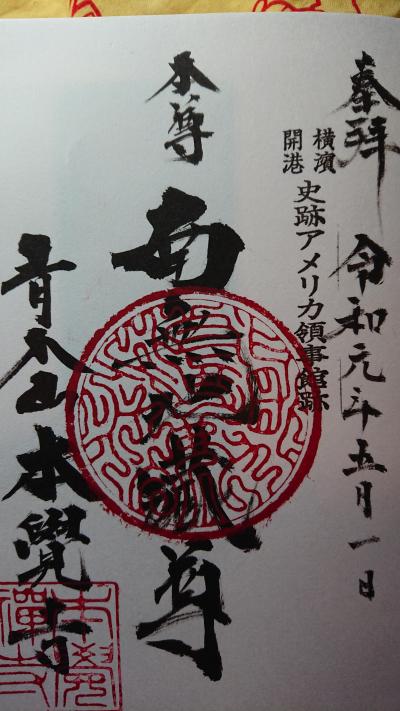 奉拝
令和元年五月一日
横濱
開港
史跡アメリカ領事館跡
本尊
南無地蔵尊
青木山本覺寺